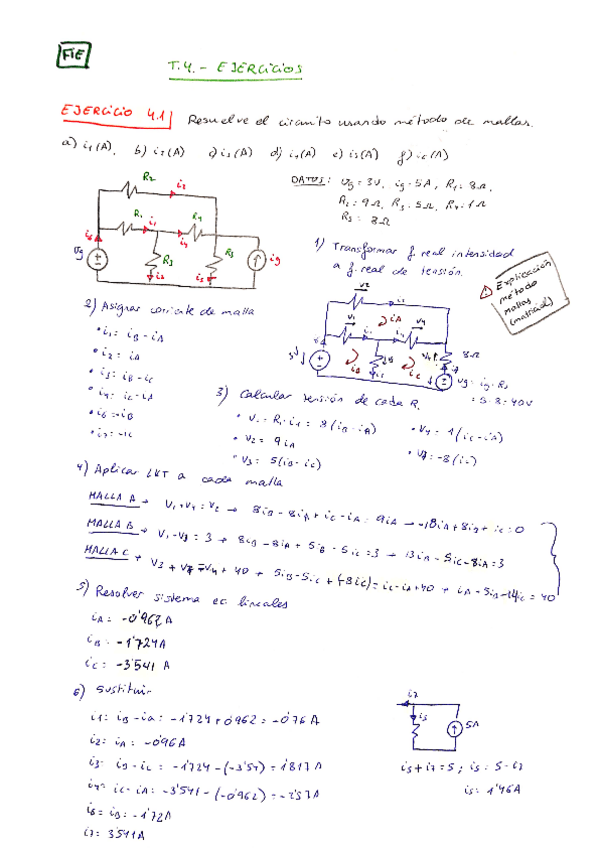 FIE
T.4.- EJERCICIOS
EJERCICIO 4.1 Resuelve el circuito usando método de mallas.
a) i1(A), b) i2(A) c) i3(A) d) i4(A) e) i5(A) f) i6(A)
DATOS: Vg=3V, ig=5A, R1=8Ω,
R2=9Ω, R3=5Ω, R4=1Ω
R5=8Ω
R2
i2
R1
i1
R4
i4
i6
Vg
R3
i3
R5
i5
ig
1) Transformar f. real intensidad
a f. real de tensión.
Explicación
método
mallas
(matricial)
2) Asignar corriente de malla
• i1 = iB - iA
• i2 = iA
• i3 = iB - iC
• i4 = iC - iA
• i6 = iB
• i7 = -iC
V2
iA
V1
V4
iB
iC
8Ω
Vg = ig·R5
= 5·8 = 40V
3) Calcular tensión de cada R.
• V1 = R1·i1 = 8(iB - iA)
• V2 = 9iA
• V3 = 5(iB - iC)
• V4 = 1(iC - iA)
• V7 = -8(iC)
4) Aplicar LKT a cada malla
MALLA A → V1+V4 = V2 → 8iB - 8iA + iC - iA = 9iA → -18iA + 8iB + iC = 0
MALLA B → V1+V3 = 3 → 8iB - 8iA + 5iB - 5iC = 3 → 13iB - 5iC - 8iA = 3
MALLA C → V3 + V7 = V4 + 40 → 5iB - 5iC + (-8iC) = iC - iA + 40 → iA + 5iB - 14iC = 40
5) Resolver sistema ec lineales
iA = -0'962 A
iB = -1'724 A
iC = -3'541 A
6) Sustituir
i1 = iB - iA = -1'724 + 0'962 = -0'76 A
i2 = iA = -0'96 A
i3 = iB - iC = -1'724 - (-3'54) = 1'817 A
i4 = iC - iA = -3'541 - (-0'962) = -2'57 A
i6 = iB = -1'72 A
i7 = 3'541 A
i7
i5
5A
i5 + i7 = 5; i5 = 5 - i7
i5 = 1'46 A